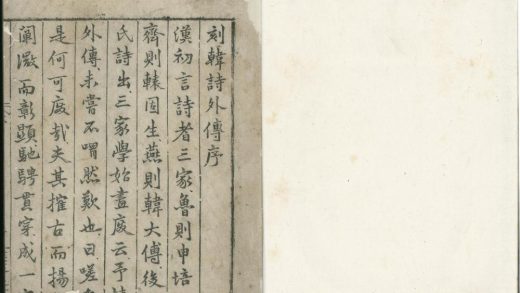 刻韓詩外傳序
漢初言詩者三家魯則申培
齊則轅固生燕則韓太傅後
氏詩出三家學始盡廢云予
外傳未嘗不喟然歎也曰嗟
是何可廢哉夫其摧古而揚
闡微而彰顯馳騁貫穿成一